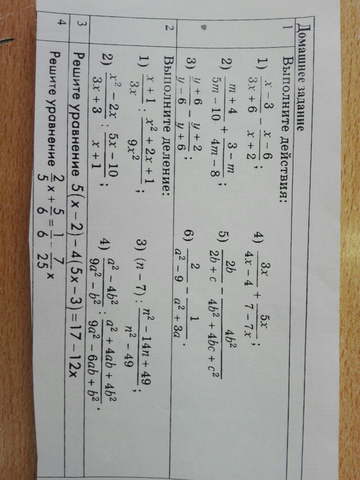 Домашнее задание
1 Выполните действия:
1) \frac{x-3}{3x+6} - \frac{x-6}{x+2};
2) \frac{m+4}{5m-10} + \frac{3-m}{4m-8};
3) \frac{y+6}{y-6} - \frac{y+2}{y+6};
4) \frac{3x}{4x-4} + \frac{5x}{7-7x};
5) \frac{2b}{2b+c} - \frac{4b^2}{4b^2+4bc+c^2};
6) \frac{2}{a^2-9} - \frac{1}{a^2+3a}.
2 Выполните деление:
1) \frac{x+1}{3x} : \frac{x^2+2x+1}{9x^2};
2) \frac{x^2-2x}{3x+3} : \frac{5x-10}{x+1};
3) (n-7) : \frac{n^2-14n+49}{n^2-49};
4) \frac{a^2-4b^2}{9a^2-b^2} : \frac{a^2+4ab+4b^2}{9a^2-6ab+b^2}.
3 Решите уравнение 5(x-2)-4(5x-3)=17-12x
4 Решите уравнение \frac{2}{5}x+\frac{5}{6}=\frac{1}{6}-\frac{7}{25}x